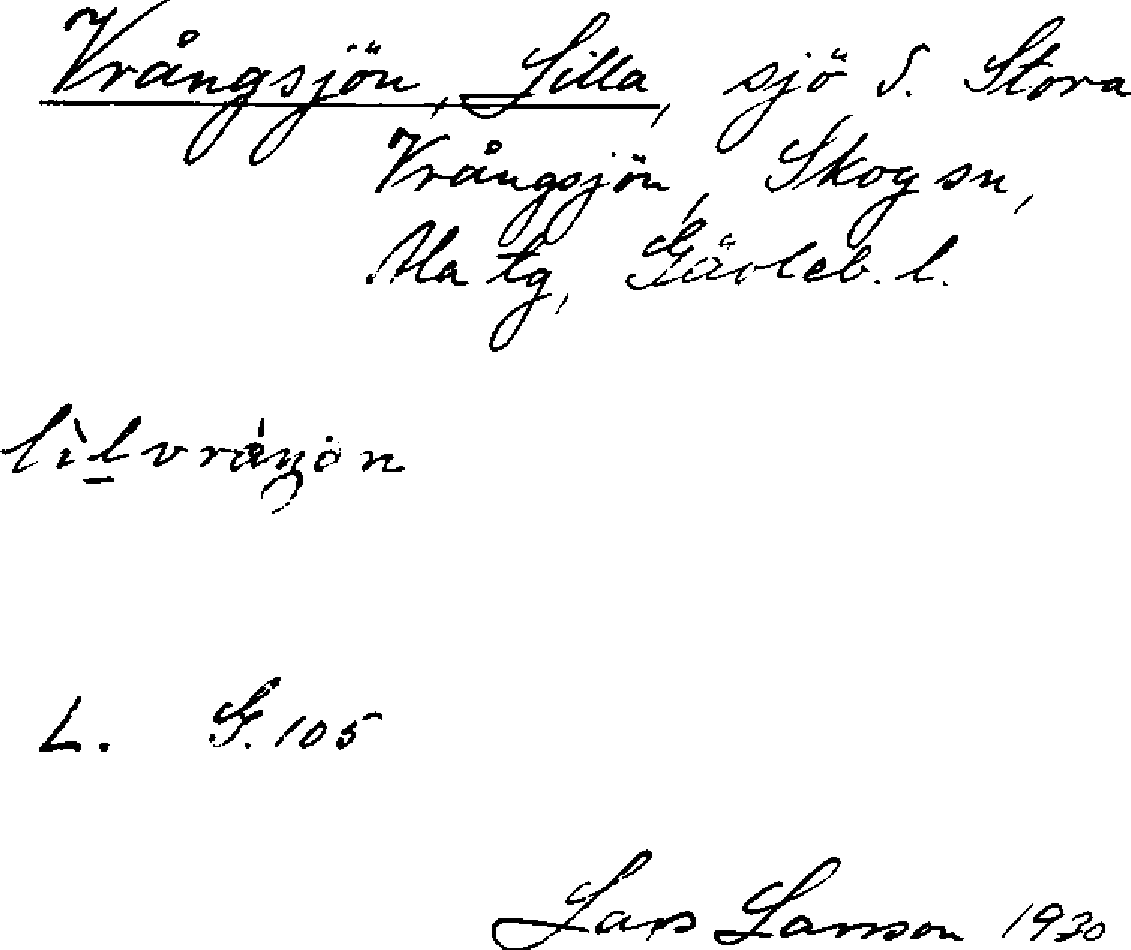 Vrångsjön, Lilla, sjö S. Stora
Vrångsjön, Skog sn,
Ala tg, Gävleb. l.
L. G. 105
Lars Larsson 1930